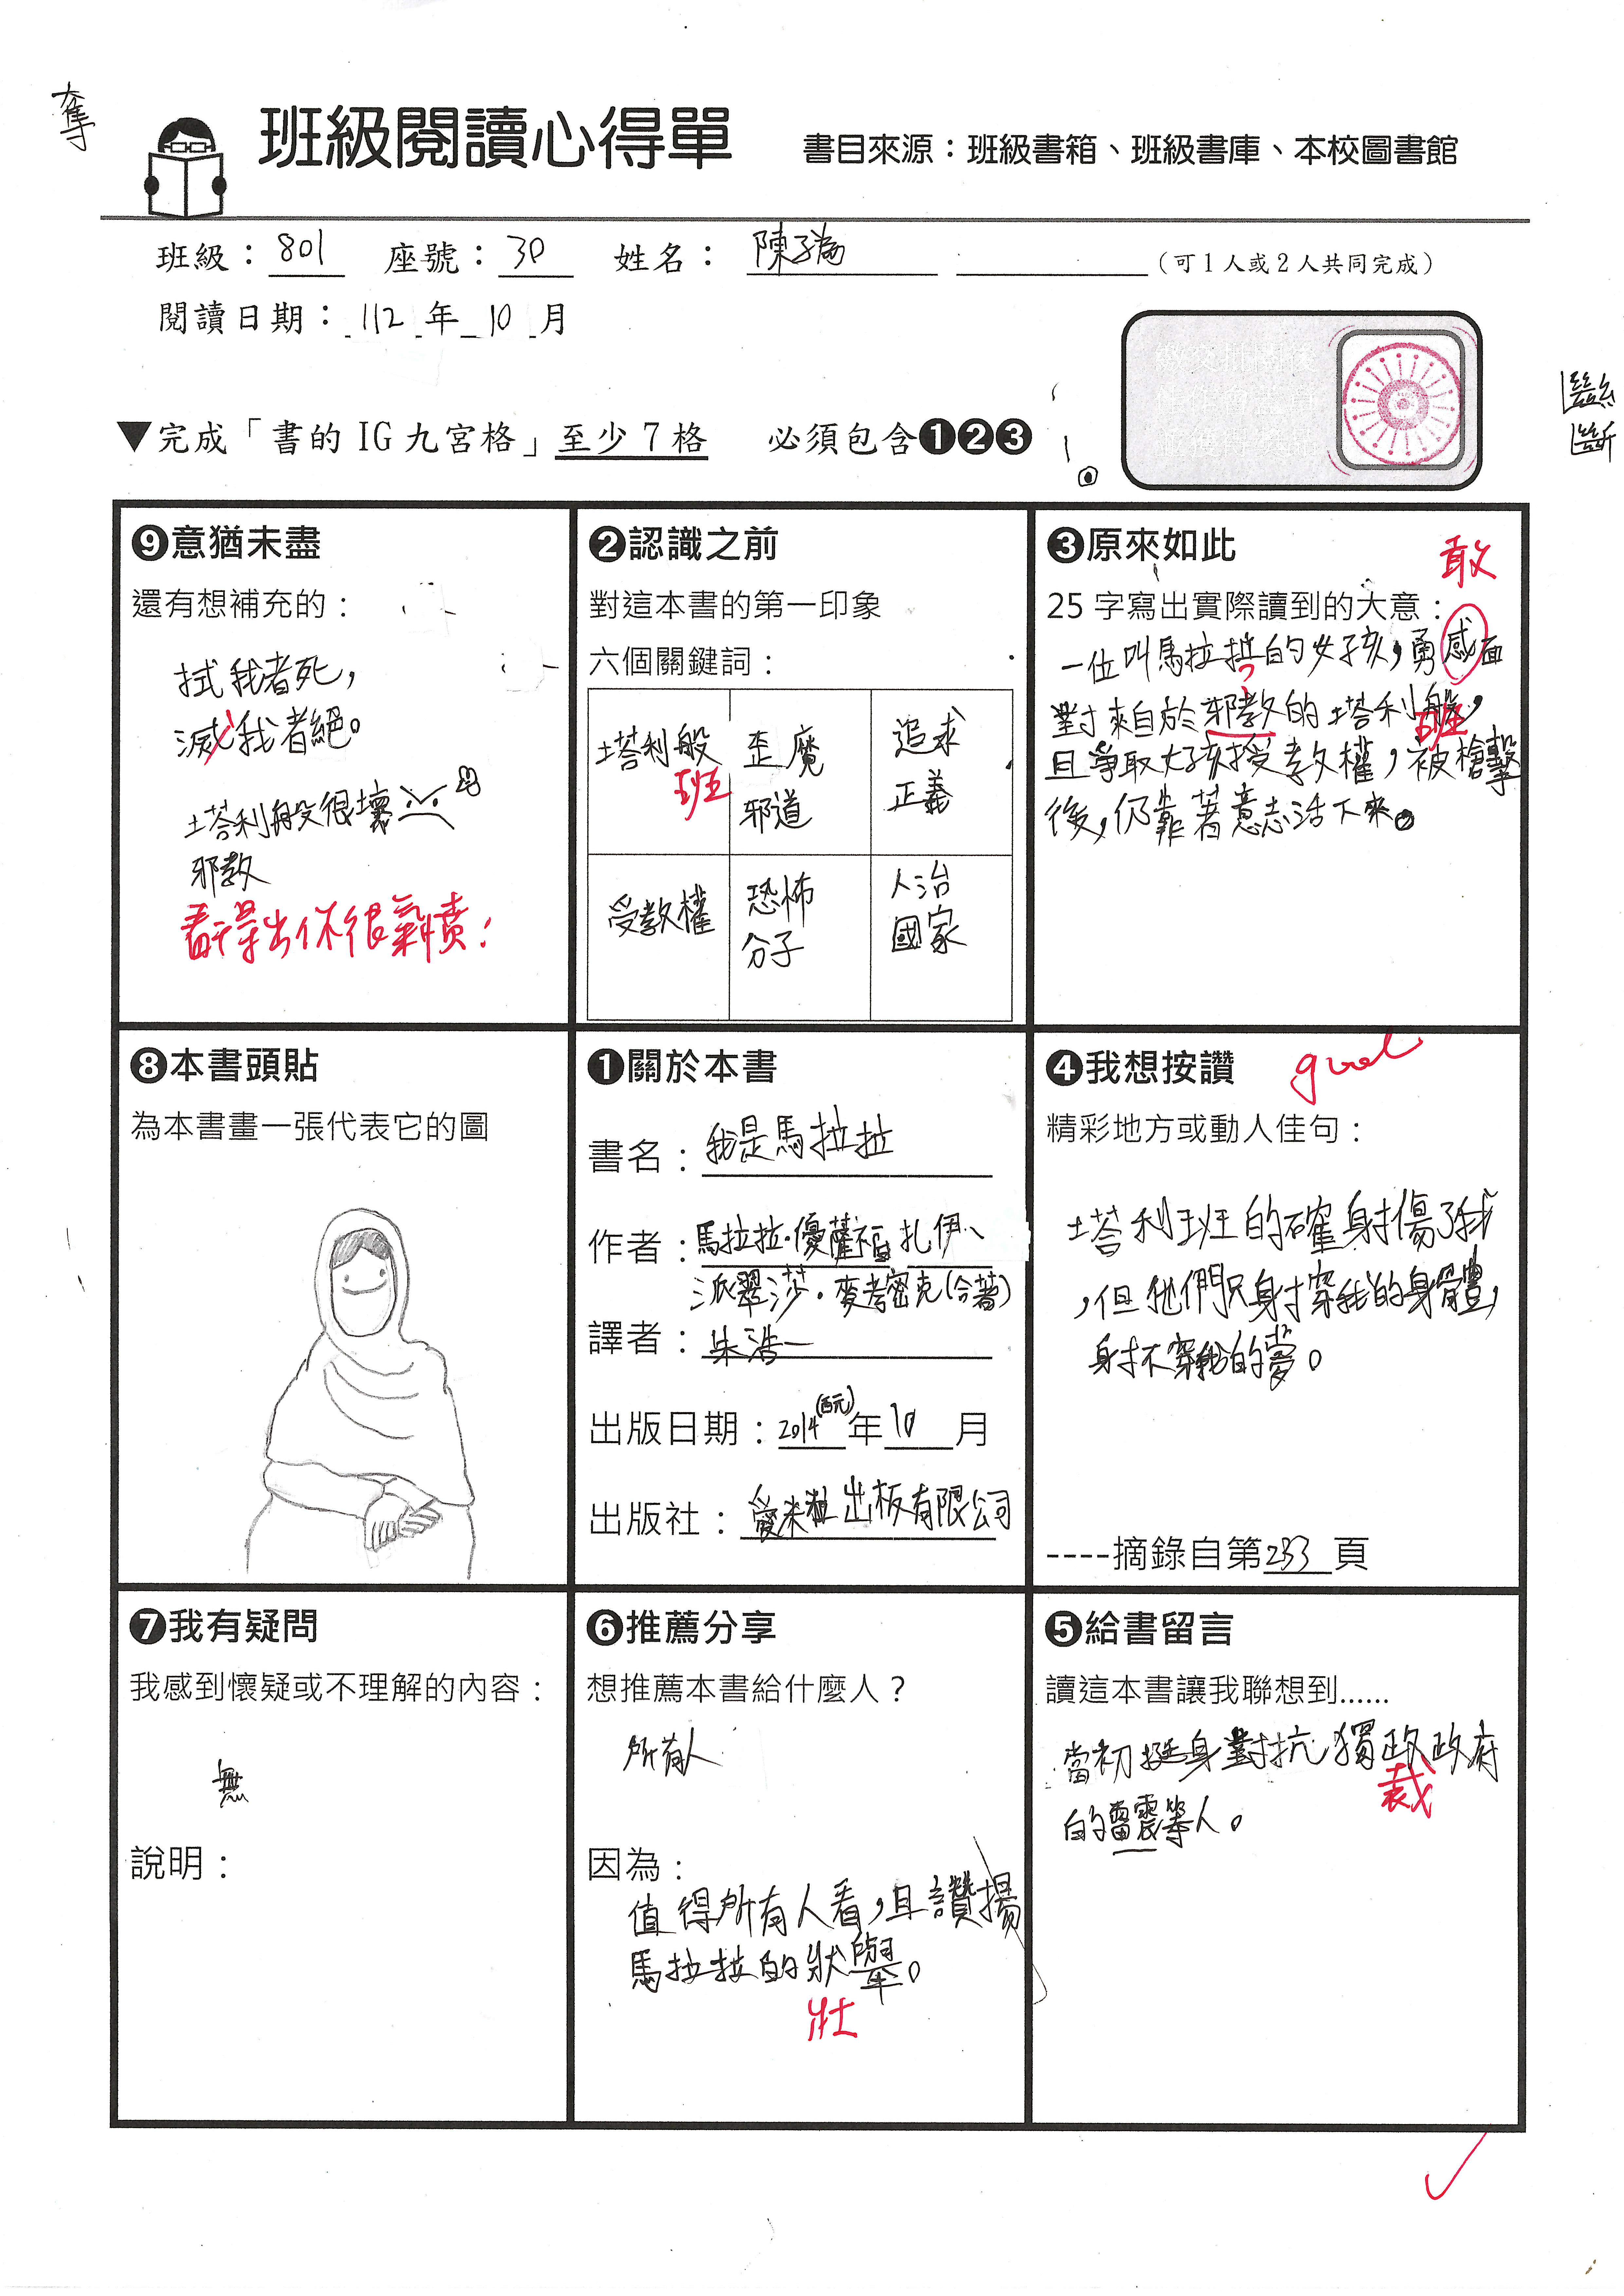 奪
班級閱讀心得單
書目來源：班級書箱、班級書庫、本校圖書館
班級：801 座號：30 姓名：陳子為 （可1人或2人共同完成）
閱讀日期：112年10月
▼完成「書的 IG 九宮格」至少 7 格 必須包含❶❷❸
斷
❾意猶未盡
還有想補充的：
拭我者死，
滅我者絕。
塔利般很壞
邪教
看得出你很氣憤！
❷認識之前
對這本書的第一印象
六個關鍵詞：
塔利般
班
歪魔
邪道
追求
正義
受教權
恐怖
分子
人治
國家
❸原來如此
敢
25 字寫出實際讀到的大意：
一位叫馬拉拉的女孩，勇感面
對來自於邪教的塔利般，
班
且爭取女孩授教權，被槍擊
後，仍靠著意志活下來。
❽本書頭貼
為本書畫一張代表它的圖
❶關於本書
書名：我是馬拉拉
作者：馬拉拉·優薩福扎伊、
派翠莎·麥考密克(合著)
譯者：朱浩一
出版日期：2014(西元)年10月
出版社：愛米粒出板有限公司
❹我想按讚
good
精彩地方或動人佳句：
塔利班的確射傷了我
，但他們只射穿我的身體，
射不穿我的夢。
----摘錄自第233頁
❼我有疑問
我感到懷疑或不理解的內容：
無
說明：
❻推薦分享
想推薦本書給什麼人？
所有人
因為：
值得所有人看，且讚揚
馬拉拉的狀舉。
壯
❺給書留言
讀這本書讓我聯想到......
當初挺身對抗獨政政府
裁
的雷震等人。